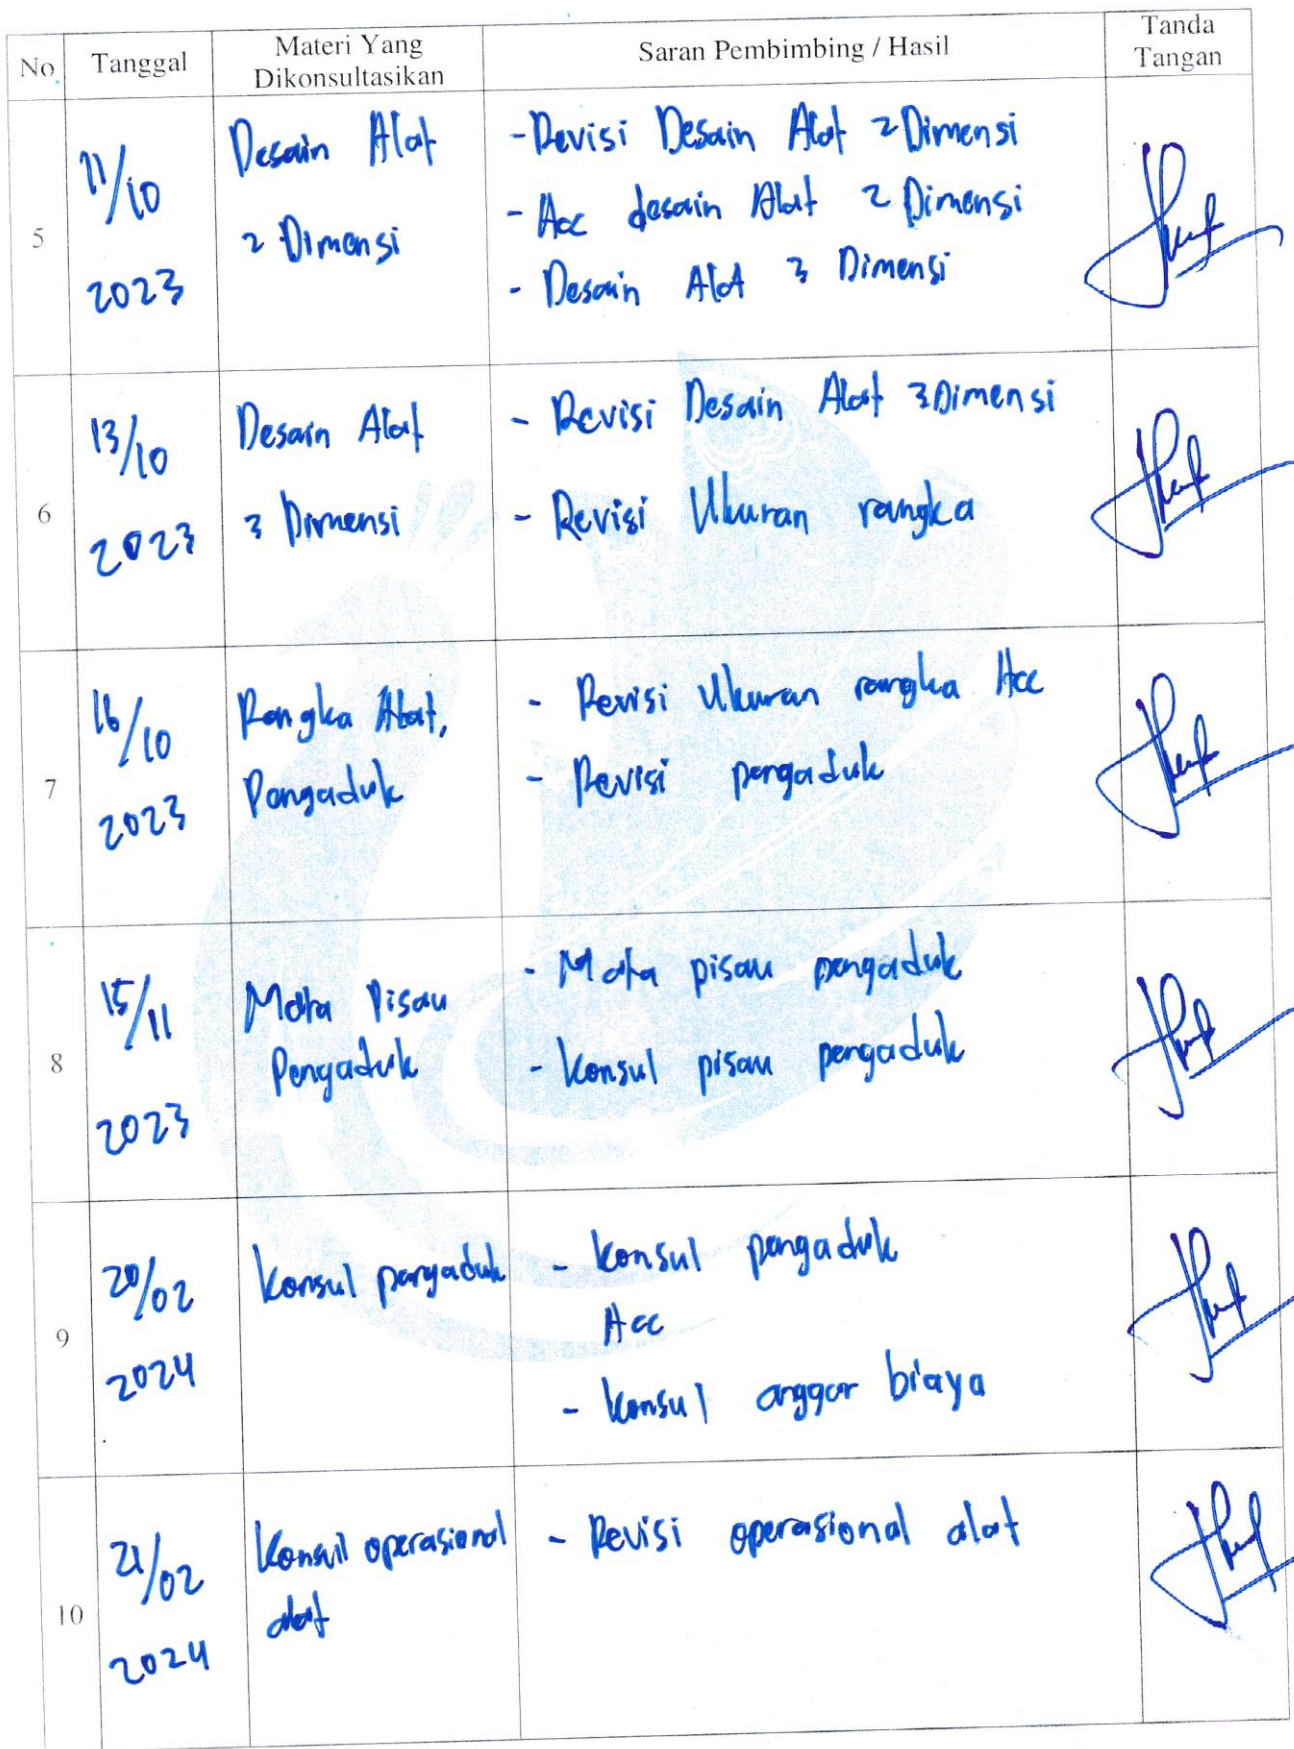 No
Tanggal
Materi Yang
Dikonsultasikan
Saran Pembimbing / Hasil
Tanda
Tangan
5
11/10
2023
Desain Alat
2 Dimensi
- Revisi Desain Alat 2 Dimensi
- Acc desain Alat 2 Dimensi
- Desain Alat 3 Dimensi
6
13/10
2023
Desain Alat
3 Dimensi
- Revisi Desain Alat 3 Dimensi
- Revisi Ukuran rangka
7
16/10
2023
Rangka Alat,
Pengaduk
- Revisi Ukuran rangka Acc
- Revisi pengaduk
8
15/11
2023
Mata Pisau
Pengaduk
- Mata pisau pengaduk
- Konsul pisau pengaduk
9
20/02
2024
Konsul pengaduk
- Konsul pengaduk
Acc
- Konsul anggar biaya
10
21/02
2024
Konsul operasional
alat
- Revisi operasional alat